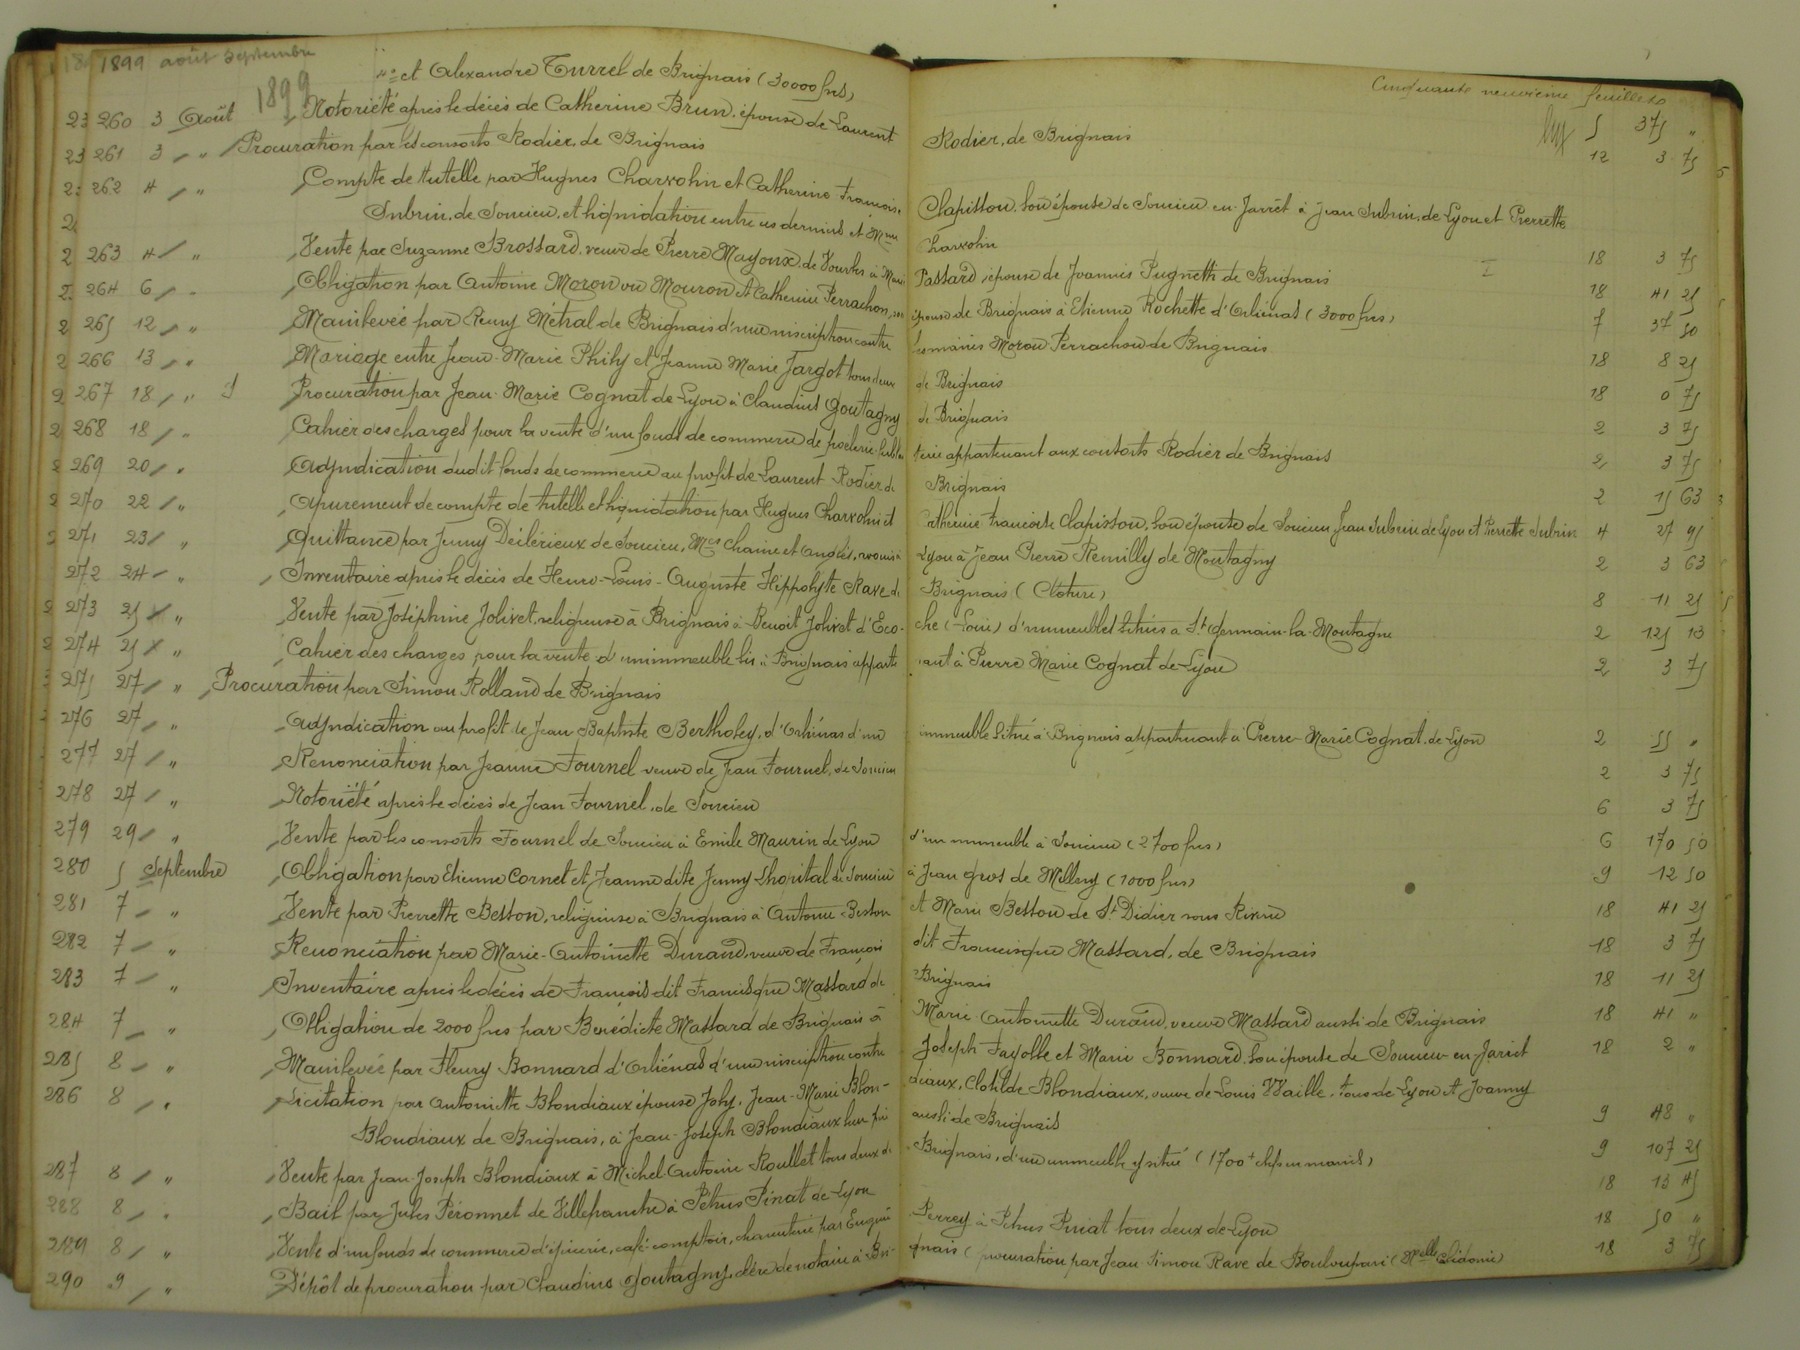 1899 août Septembre
1899
et Alexandre Turrel de Brignais (30000 frs)
Cinquante neuvième feuillets
260 3 Août Notoriété après le décès de Catherine Brun, épouse de Laurent Rodier, de Brignais 5 375 "
261 3 " Procuration par les consorts Rodier, de Brignais 12 3 75
262 4 " Compte de tutelle par Hugues Charvolin et Catherine Françoise Clapisson, son épouse de Soucieu en Jarret à Jean Subrin, de Lyon et Pierrette
Subrin, de Soucieu, et liquidation entre ces derniers et Mme Charvolin 18 3 75
263 4 " Vente par Suzanne Brossard, veuve de Pierre Mayoux, de Vourles à Marie Passard, épouse de Joannis Pugnetti de Brignais 18 41 25
264 6 " Obligation par Antoine Moron ou Mouron et Catherine Perrachon, son épouse de Brignais à Etienne Rochette d'Orliénas (3000 frs) 7 37 50
265 12 " Mainlevée par Remy Métral de Brignais d'une inscription contre les mariés Moron Perrachon de Brignais 18 8 25
266 13 " Mariage entre Jean-Marie Phily et Jeanne Marie Jargot tous deux de Brignais 18 0 75
267 18 " Procuration par Jean-Marie Cognat de Lyon à Claudius Goutagny de Brignais 2 3 75
268 18 " Cahier des charges pour la vente d'un fonds de commerce de poelerie ferblanterie appartenant aux consorts Rodier de Brignais 2 3 75
269 20 " Adjudication dudit fonds de commerce au profit de Laurent Rodier de Brignais 2 15 63
270 22 " Apurement de compte de tutelle et liquidation par Hugues Charvolin et Catherine Françoise Clapisson, son épouse de Soucieu Jean Subrin de Lyon et Pierrette Subrin 4 27 95
271 23 " Quittance par Jenny Délérieux de Soucieu, Mes Chaine et Anglès, avoués à Lyon à Jean Pierre Remilly de Montagny 2 3 63
272 24 " Inventaire après le décès de Henri-Louis-Auguste Hippolyte Rave de Brignais (Clôture) 8 11 25
273 25 " Vente par Joséphine Jolivet, religieuse à Brignais à Benoit Jolivet d'Ecoche (Loire) d'immeubles situés à St Germain-la-Montagne 2 125 13
274 25 " Cahier des charges pour la vente d'un immeuble sis à Brignais appartenant à Pierre Marie Cognat de Lyon 2 3 75
275 27 " Procuration par Simon Rolland de Brignais
276 27 " Adjudication au profit de Jean Baptiste Bertholey, d'Orliénas d'un immeuble situé à Brignais appartenant à Pierre-Marie Cognat, de Lyon 2 55 "
277 27 " Renonciation par Jeanne Fournel veuve de Jean Fournel, de Soucieu 2 3 75
278 27 " Notoriété après le décès de Jean Fournel, de Soucieu 6 3 75
279 29 " Vente par les consorts Fournel de Soucieu à Emile Maurin de Lyon d'un immeuble à Soucieu (2700 frs) 6 170 50
280 5 Septembre Obligation par Etienne Cornet et Jeanne dite Jenny Lhopital de Soucieu à Jean Gros de Millery (1000 frs) 9 12 50
281 7 " Vente par Pierrette Besson, religieuse à Brignais à Antoine Besson et Marie Besson de St Didier sous Riverie 18 41 25
282 7 " Renonciation par Marie-Antoinette Durand, veuve de François dit Francisque Massard, de Brignais 18 3 75
283 7 " Inventaire après le décès de François dit Francisque Massard de Brignais 18 11 25
284 7 " Obligation de 2000 frs par Bénédicte Massard de Brignais à Marie-Antoinette Durand, veuve Massard aussi de Brignais 18 41 "
285 8 " Mainlevée par Fleury Bonnard d'Orliénas d'une inscription contre Joseph Fayolle et Marie Bonnard, son épouse de Soucieu en Jarret 18 2 "
286 8 " Licitation par Antoinette Blondiaux épouse Joly, Jean-Marie Blondiaux, Clotilde Blondiaux, veuve de Louis Waille, tous de Lyon et Joanny
Blondiaux de Brignais, à Jean-Joseph Blondiaux leur père aussi de Brignais 9 48 "
287 8 " Vente par Jean-Joseph Blondiaux à Michel Antoine Roullet tous deux de Brignais, d'un immeuble y situé 9 107 25
288 8 " Bail par Jules Péronnet de Villefranche à Pétrus Pinat de Lyon 18 13 45
289 8 " Vente d'un fonds de commerce d'épicerie, café-comptoir, charcuterie par Eugène Perrey à Pétrus Pinat tous deux de Lyon 18 50 "
290 9 " Dépôt de procuration par Claudius Goutagny, clerc de notaire à Brignais (procuration par Jean Simon Rave de (Melle Clidonie) 18 3 75